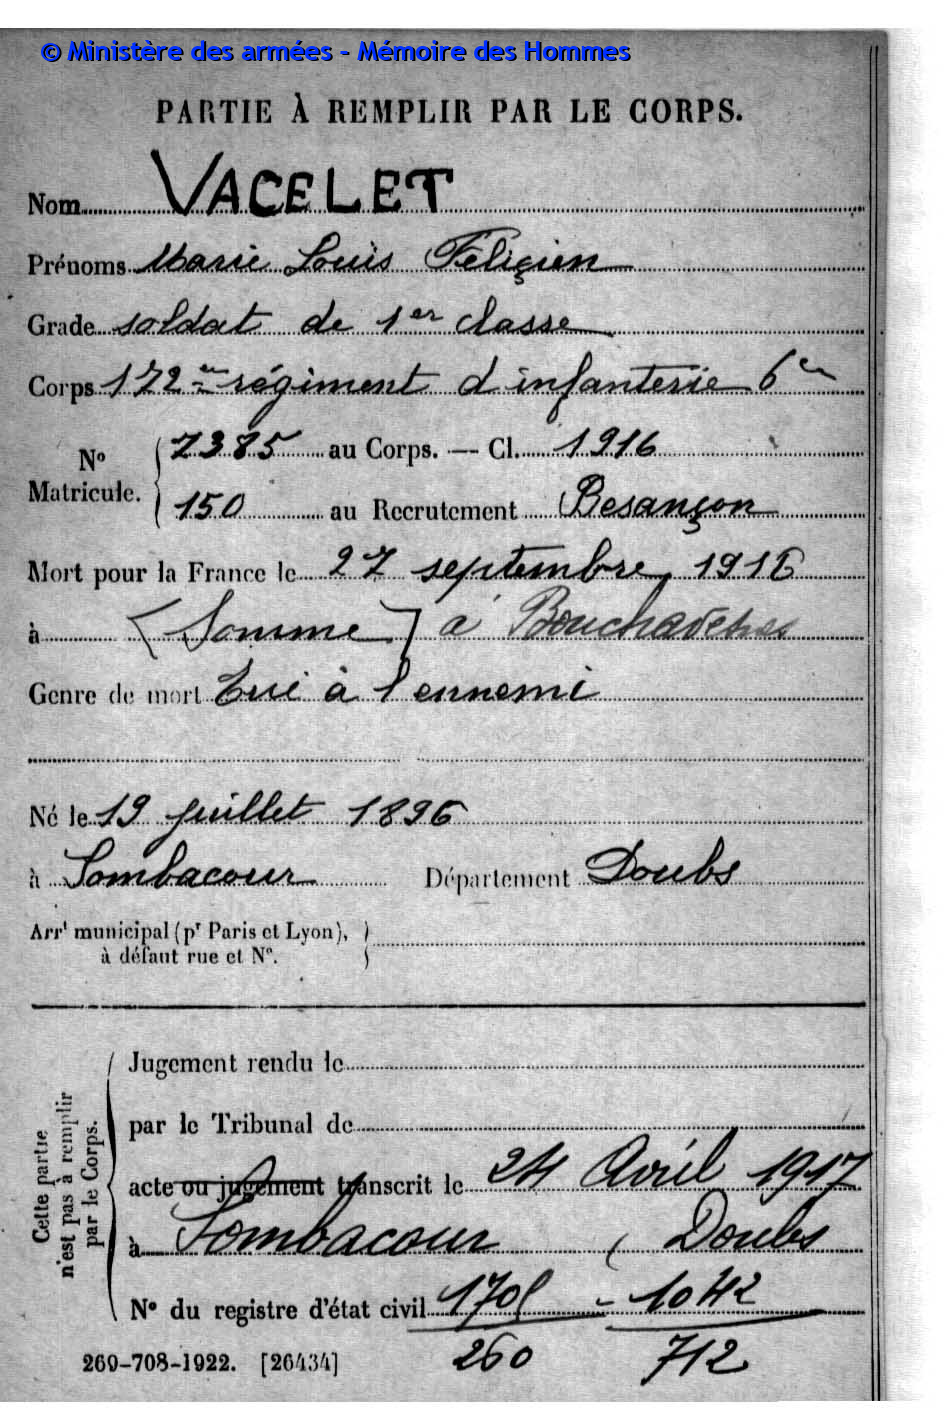 © Ministère des armées - Mémoire des Hommes
PARTIE À REMPLIR PAR LE CORPS.
Nom VACELET
Prénoms Marie Louis Féliçien
Grade soldat de 1er classe
Corps 172me régiment d'infanterie 6
7385 au Corps. — Cl. 1916
No Matricule.
150 au Recrutement Besançon
Mort pour la France le 27 septembre 1916
à (Somme) à Bouchavesnes
Genre de mort Tué à l'ennemi
Né le 19 juillet 1896
à Sombacour Département Doubs
Arrt municipal (pr Paris et Lyon),
à défaut rue et No.
Cette partie
n'est pas à remplir
par le Corps.
Jugement rendu le
par le Tribunal de
acte ou jugement transcrit le 24 Avril 1917
à Sombacour (Doubs
No du registre d'état civil - 1042
260 712
269-708-1922. [26434]